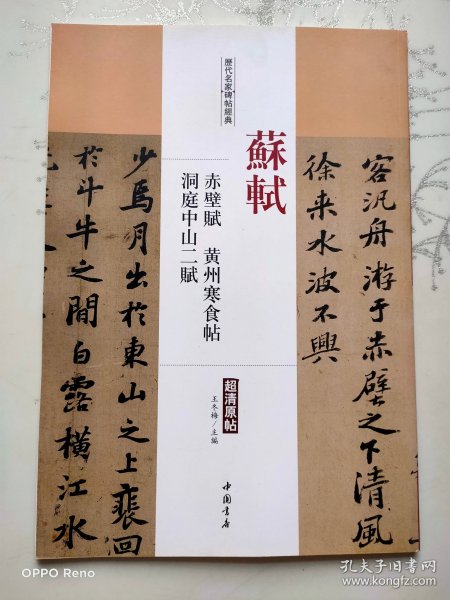 客汎舟游于赤壁之下清風
徐来水波不興
歷代名家碑帖經典
蘇軾
赤壁賦 黃州寒食帖
洞庭中山二賦
超清原帖
王冬梅/主編
中国書店
少焉月出於東山之上裵回
於斗牛之間白露橫江水
OPPO Reno
孔夫子旧书网
www.kongfz.com